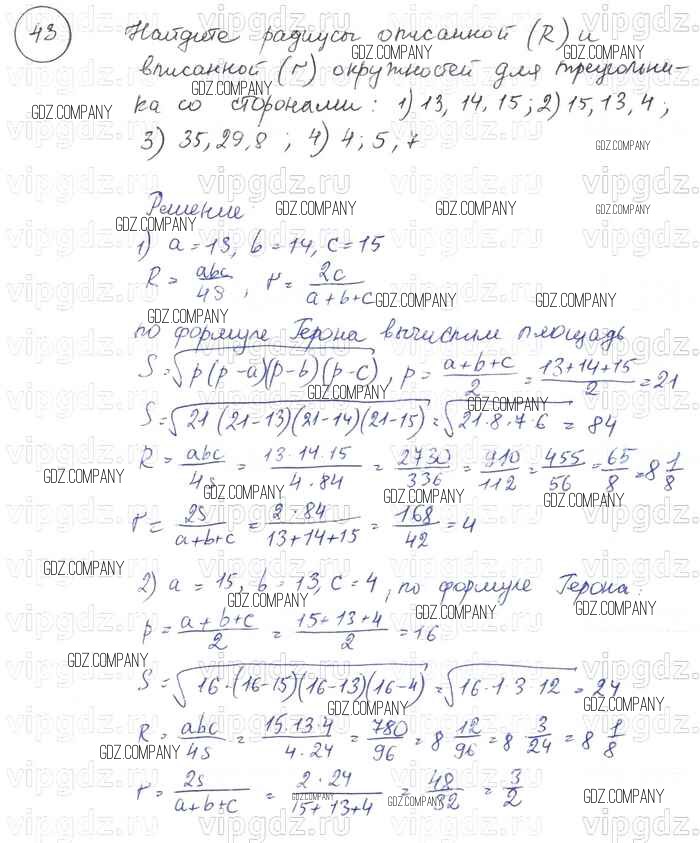 43
Найдите радиусы описанной (R) и
вписанной (r) окружностей для треугольни-
ка со сторонами: 1) 13, 14, 15; 2) 15, 13, 4;
3) 35, 29, 8; 4) 4; 5, 7
Решение
1) a = 13, b = 14, c = 15
R = abc/4S, r = 2c/a+b+c
по формуле Герона вычислим площадь
S = √p(p-a)(p-b)(p-c), p = a+b+c/2 = 13+14+15/2 = 21
S = √21(21-13)(21-14)(21-15) = √21·8·7·6 = 84
R = abc/4s = 13·14·15/4·84 = 2730/336 = 910/112 = 455/56 = 65/8 = 8 1/8
r = 2s/a+b+c = 2·84/13+14+15 = 168/42 = 4
2) a = 15, b = 13, c = 4, по формуле Герона:
p = a+b+c/2 = 15+13+4/2 = 16
S = √16·(16-15)(16-13)(16-4) = √16·1·3·12 = 24
R = abc/4s = 15·13·4/4·24 = 780/96 = 8 12/96 = 8 3/24 = 8 1/8
r = 2s/a+b+c = 2·24/15+13+4 = 48/32 = 3/2